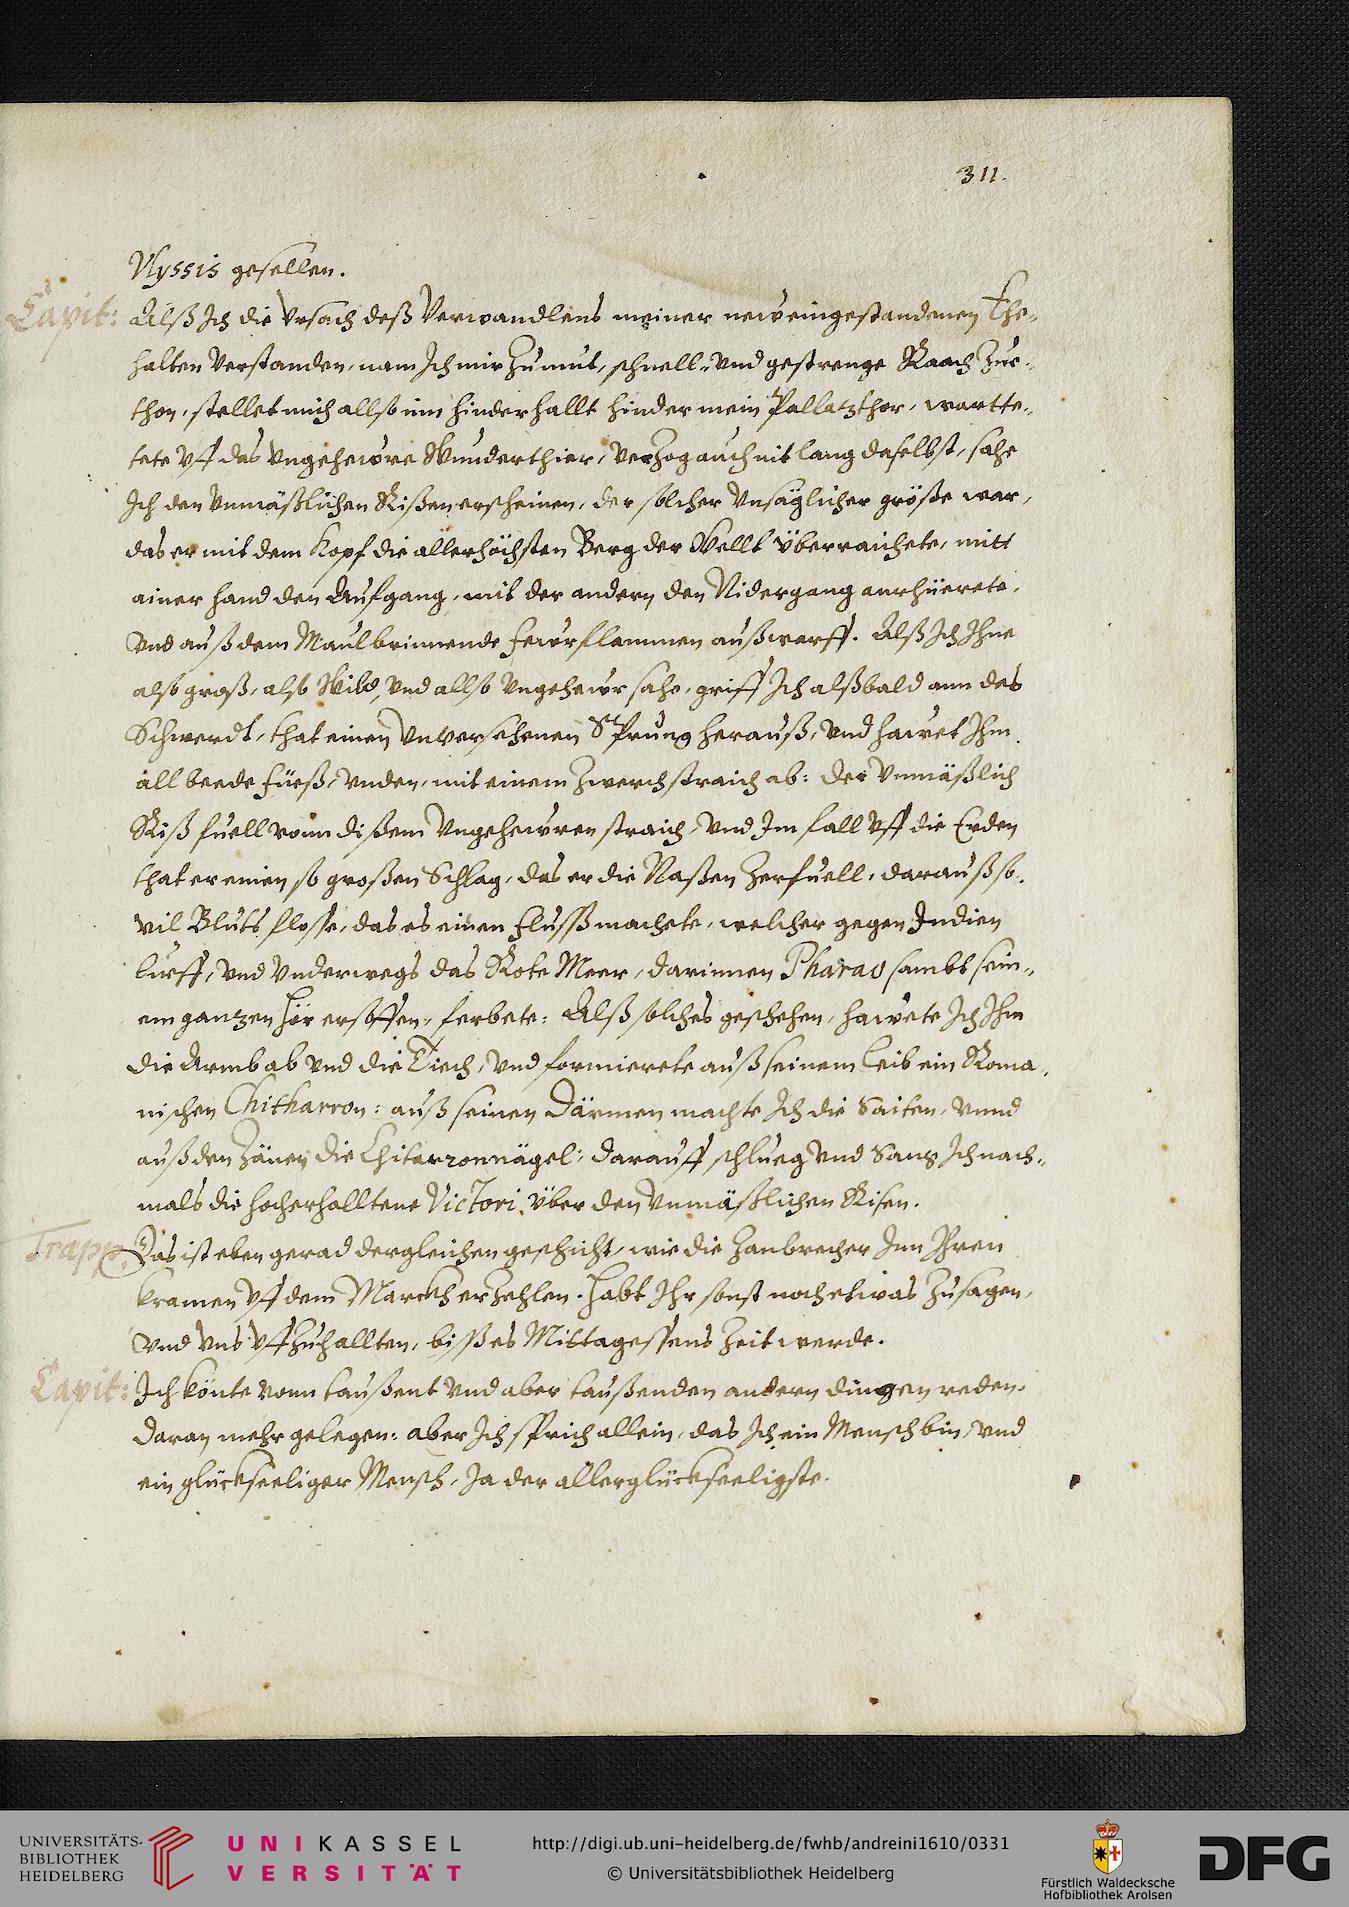 311.
Ulyssis gesellen.
Capit: Alß Ich die Ursach deß Verwandlens meiner neẅ eingestandenen Ehe-
halten verstanden, nam Ich mir Zu mut, schnell- und gestrenge Raach Zue
thon, stellet mich allso inn hinderhallt hinder mein Pallatzthor, wartte-
tete uff das ungeheẅre Wunderthier, verZog auch nit lang daselbst, sahe
Ich den Unmäßlichen Rißen erscheinen, der solcher Unsäglicher größe war,
das er mit dem Kopf die allerhöchsten Berg der Wellt überraichete, mitt
ainer hand den Aufgang, mit der andern den Nidergang anrhüerete,
und auß dem Maul brinnende feẅrflammen außwarff. Alß Ich Ihne
also groß, also Wild, und allso ungeheẅr sahe, griff Ich alßbald ann das
Schwerdt, that einen Unversehenen Sprung herauß, und haẅet Ihm
all beede füeß, unden, mit einem Zwerchstraich ab: der Unmäßlich
Riß fuell vonn dißem Ungeheẅren straich, und Im fall uff die Erden
that er einen so großen Schlag, das er die Naßen Zerfuell, darauß so
vil Bluts flosse, das es einen Flusß machete, welcher gegen Indien
lieff, und underwegs das Rote Meer, darinnen Pharao sambt sein-
em gantzen Hör ersoffen, ferbete: Alß solches geschehen, haẅete Ich Ihm
die Armb ab und die Diech, und formierete auß seinem Leib ein Roma-
nischen Chitharron: auß seinen Därmen machte Ich die Saiten, unnd
auß den Zänen die Chitarronnägel: darauff schlueg und Sang Ich nach-
mals die hocherhalltene Victori über den Unmäßlichen Risen.
Trapp: Das ist eben gerad dergleichen geschicht, wie die Zanbrecher Inn Ihren
Kramen uff dem Marckh erZehlen. Habt Ihr sonst noch etwas Zusagen,
und uns uffZuhallten, biß es Mittagessens Zeit werde.
Capit: Ich könte vonn taußent und aber taußenden andern dingen reden,
daran mehr gelegen: aber Ich sprich allein, das Ich ein Mensch bin, und
ein glückseeliger Mensch, Ja der allerglückseeligste.
UNIVERSITÄTS-
BIBLIOTHEK
HEIDELBERG
UNIKASSEL
VERSITÄT
http://digi.ub.uni-heidelberg.de/fwhb/andreini1610/0331
© Universitätsbibliothek Heidelberg
Fürstlich Waldecksche
Hofbibliothek Arolsen
DFG